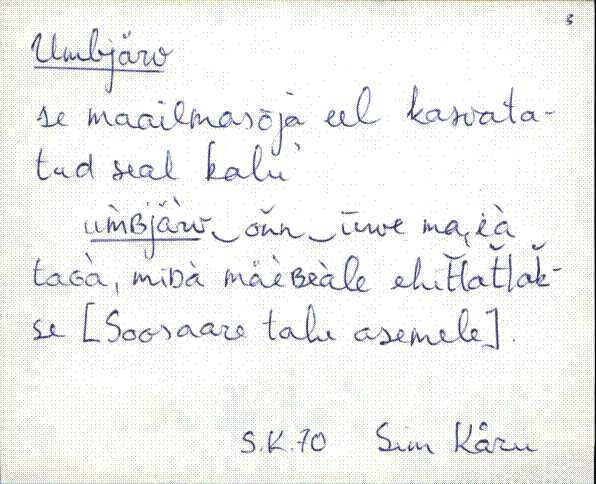 3
Umbjärv
se maailmasõjà eel kasvata-
tud seal kalu
ùm̀ʙjä̀rv‿oǔn‿ūwe maièà
taɢà, miᴅà mäèʙeàle ehit̆t̆lat̆t̆lak̆-
se [Soosaare talu asemele].
S.K.70 Sim Kåru